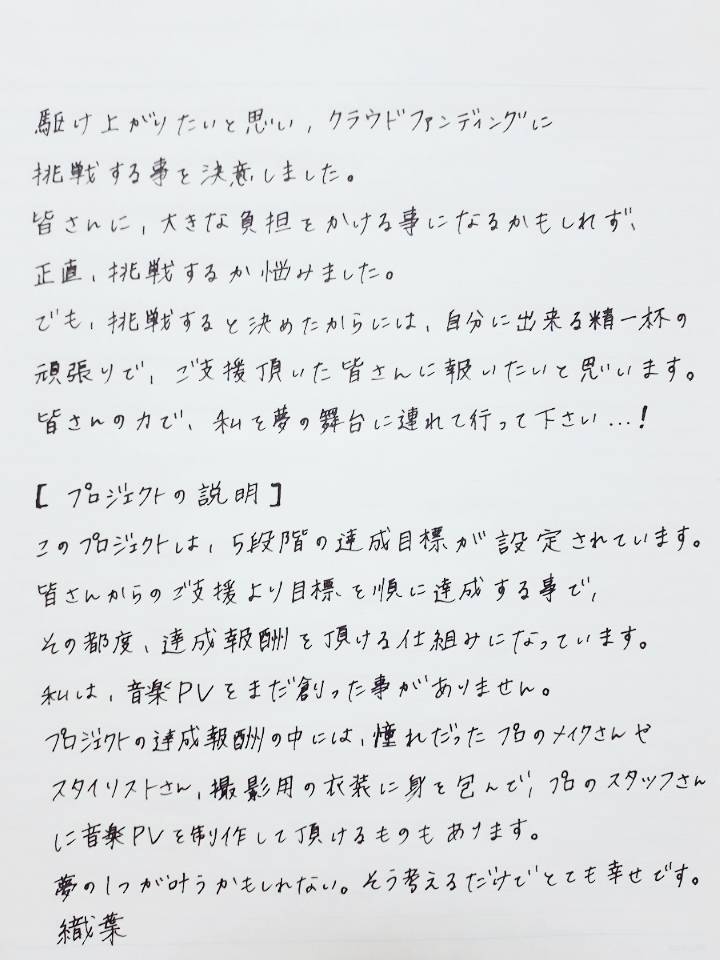 駆け上がりたいと思い、クラウドファンディングに
挑戦する事を決意しました。
皆さんに、大きな負担をかける事になるかもしれず、
正直、挑戦するか悩みました。
でも、挑戦すると決めたからには、自分に出来る精一杯の
頑張りで、ご支援頂いた皆さんに報いたいと思います。
皆さんの力で、私を夢の舞台に連れて行って下さい…!
[プロジェクトの説明]
このプロジェクトは、5段階の達成目標が設定されています。
皆さんからのご支援より目標を順に達成する事で、
その都度、達成報酬を頂ける仕組みになっています。
私は、音楽PVをまだ創った事がありません。
プロジェクトの達成報酬の中には、憧れだったプロのメイクさんや
スタイリストさん、撮影用の衣装に身を包んで、プロのスタッフさん
に音楽PVを制作して頂けるものもあります。
夢の1つが叶うかもしれない。そう考えるだけでとても幸せです。
織葉